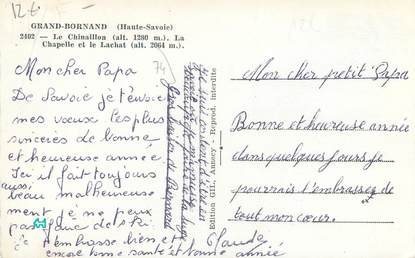 12€
GRAND-BORNAND (Haute-Savoie)
2402 - Le Chinaillon (alt. 1280 m). La
Chapelle et le Lachat (alt. 2064 m.).
74
Mon cher Papa
De Savoie je t'envoie
mes vœux les plus
sincères de bonne
et heureuse année.
Ici il fait toujours
aussi beau malheureuse
ment je ne peux
pas faire de ski
Je t'embrasse bien et
encore bonne santé et bonne année
Claude
je suis content d'être en
Gros baiser de Bernard
Edition GIL, Annecy - Reprod. interdite
Mon cher petit Papa
Bonne et heureuse année
dans quelques jours je
pourrais t'embrasser de
tout mon cœur.